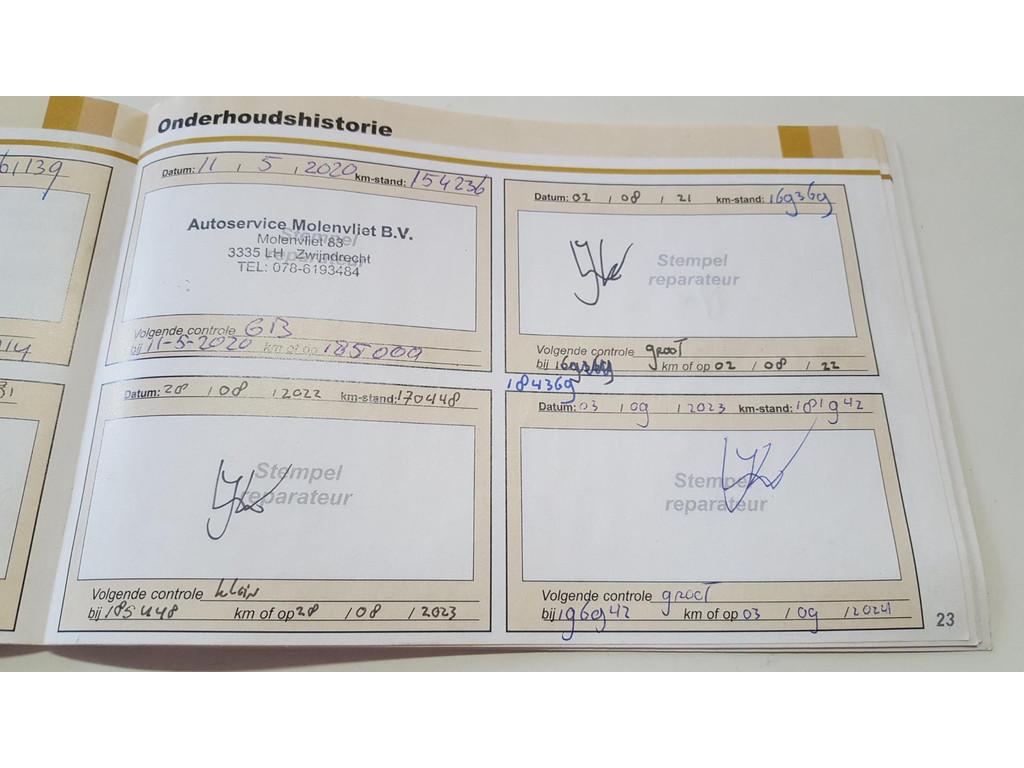 Onderhoudshistorie
6,139
Datum: 11 , 5 , 2020 km-stand: 154236
Autoservice Molenvliet B.V.
Stempel
Molenvliet 83
reparateur
3335 LH Zwijndrecht
TEL: 078-6193484
Volgende controle GB
bij 11-5-2020 km of op 185000
Datum: 02 / 08 / 21 km-stand: 169369
Stempel
reparateur
Volgende controle groot
bij km of op 02 / 08 / 22
184369
Datum: 28 / 08 / 2022 km-stand: 170448
Stempel
reparateur
Volgende controle klein
bij 185448 km of op 28 / 08 / 2023
Datum: 03 / 09 / 2023 km-stand: 181942
Stempel
reparateur
Volgende controle groot
bij 196942 km of op 03 / 09 / 2024
23